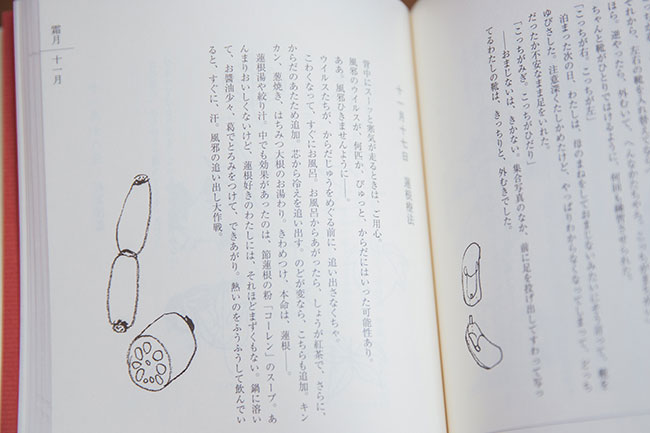 それから、左右の靴を入れ替えて
ほら。逆やったら、外むいて、へんなかたちやろ。
ちゃんと靴がひとりではけるように、何回も練習させられた。
「こっちが右。こっちが左」
泊まった次の日、わたしは、母のまねをしておまじないみたいにそう言って、靴を
ゆびさした。注意深くたしかめたけど、やっぱりわからなくなってしまって、どっち
だったか不安なまま足をいれた。
「こっちがみぎ。こっちがひだり」
――おまじないは、きかない。集合写真のなか、前に足を投げ出してすわって写っ
てるわたしの靴は、きっちりと、外むきでした。
十一月十七日　蓮根療法
背中にスーッと寒気が走るときは、ご用心。
風邪のウイルスが、何匹か、ぴゅっと、からだにはいった可能性あり。
ああ。風邪ひきませんように――。
ウイルスたちが、からだじゅうをめぐる前に、追い出さなくちゃ。
こわくなって、すぐにお風呂。お風呂からあがったら、しょうが紅茶で、さらに、
からだのあたため追加。芯から冷えを追い出す。のどが変なら、こちらも追加。キン
カン、葱焼き、はちみつ大根のお湯わり。きわめつけ、本命は、蓮根――。
蓮根湯や絞り汁。中でも効果があったのは、節蓮根の粉「コーレン」のスープ。あ
んまりおいしくないけど、蓮根好きのわたしには、それほどまずくもない。鍋に溶い
て、お醤油少々、葛でとろみをつけて、できあがり。熱いのをふうふうして飲んでい
ると、すぐに、汗。風邪の追い出し大作戦。
霜月　十一月